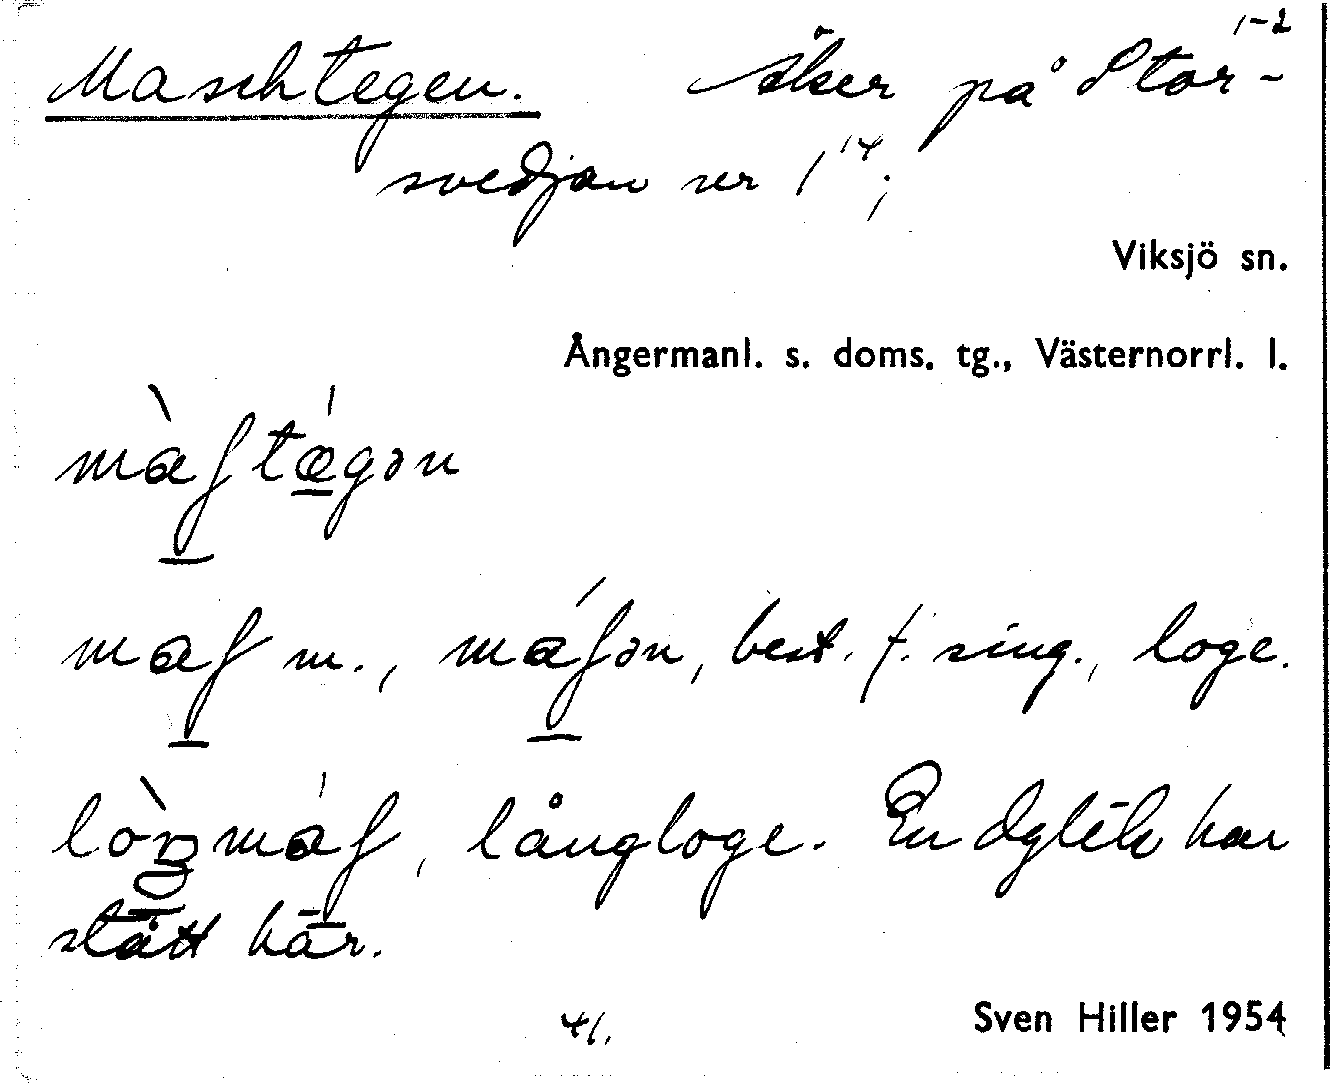 1-2
Maschtegen. Åker på Stor-
svedjan nr 1¹⁴;
Viksjö sn.
Ångermanl. s. doms. tg., Västernorrl. l.
màʃtǽgən
maʃ m., máʃən, best. f. sing., loge.
lòŋmáʃ, långloge. En dylik har
stått här.
41.
Sven Hiller 1954